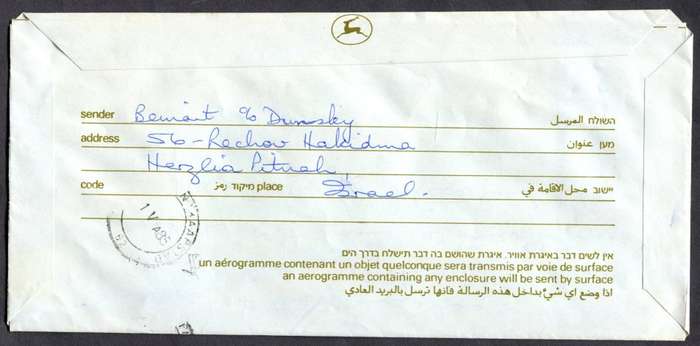 sender Beniart c/o Dunsky השולח المرسل
address 56-Rechov Hakidma מען عنوان
Herzlia Pituah,
code מיקוד رمز place Israel. יישוב محل الاقامة في
אין לשים דבר באיגרת אוויר. איגרת שהושם בה דבר תישלח בדרך הים
un aérogramme contenant un objet quelconque sera transmis par voie de surface
an aerogramme containing any enclosure will be sent by surface
اذا وضع اي شيء بداخل هذه الرسالة فانها ترسل بالبريد العادي